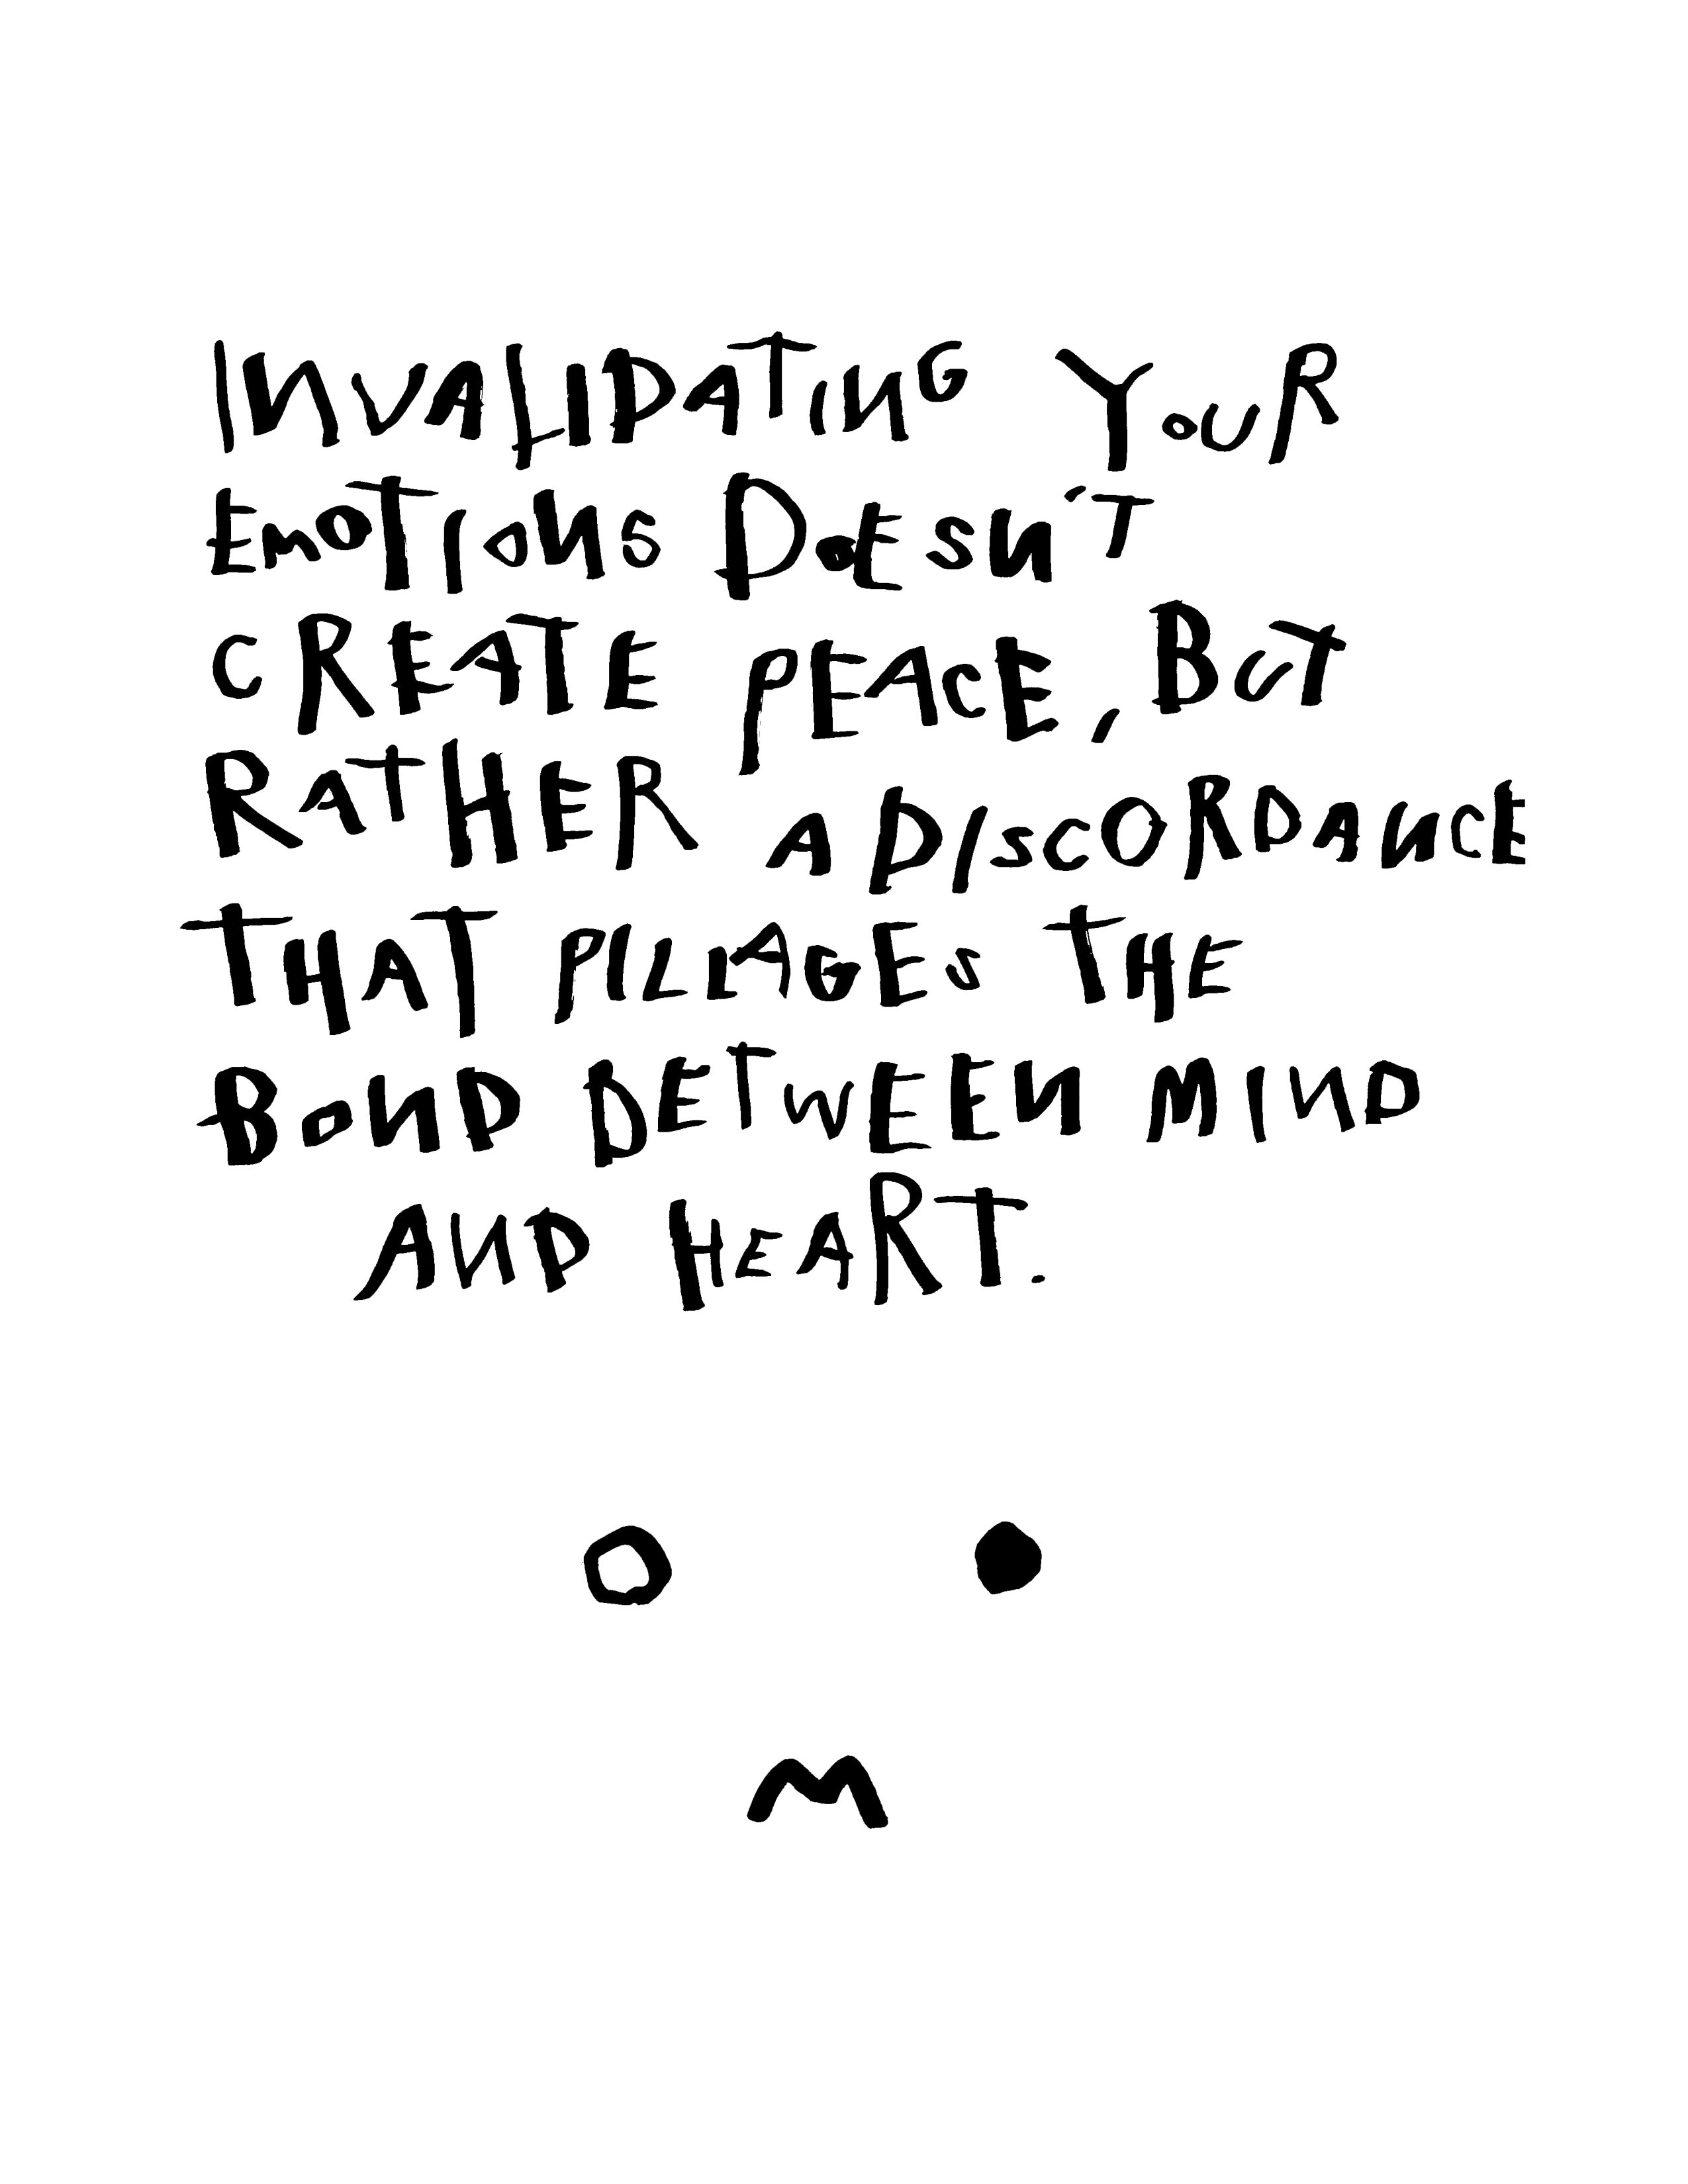 INVALIDATING YOUR
EMOTIONS DOESN'T
CREATE PEACE, BUT
RATHER A DISCORDANCE
THAT PILLAGES THE
BOND BETWEEN MIND
AND HEART.